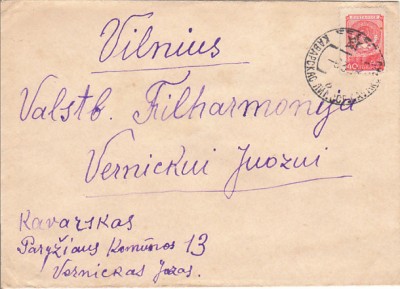 Vilnius
Valstb. Filharmonija
Vernickui Juozui
Kavarskas
Paryžiaus Komūnos 13
Vernickas Jozas.
40